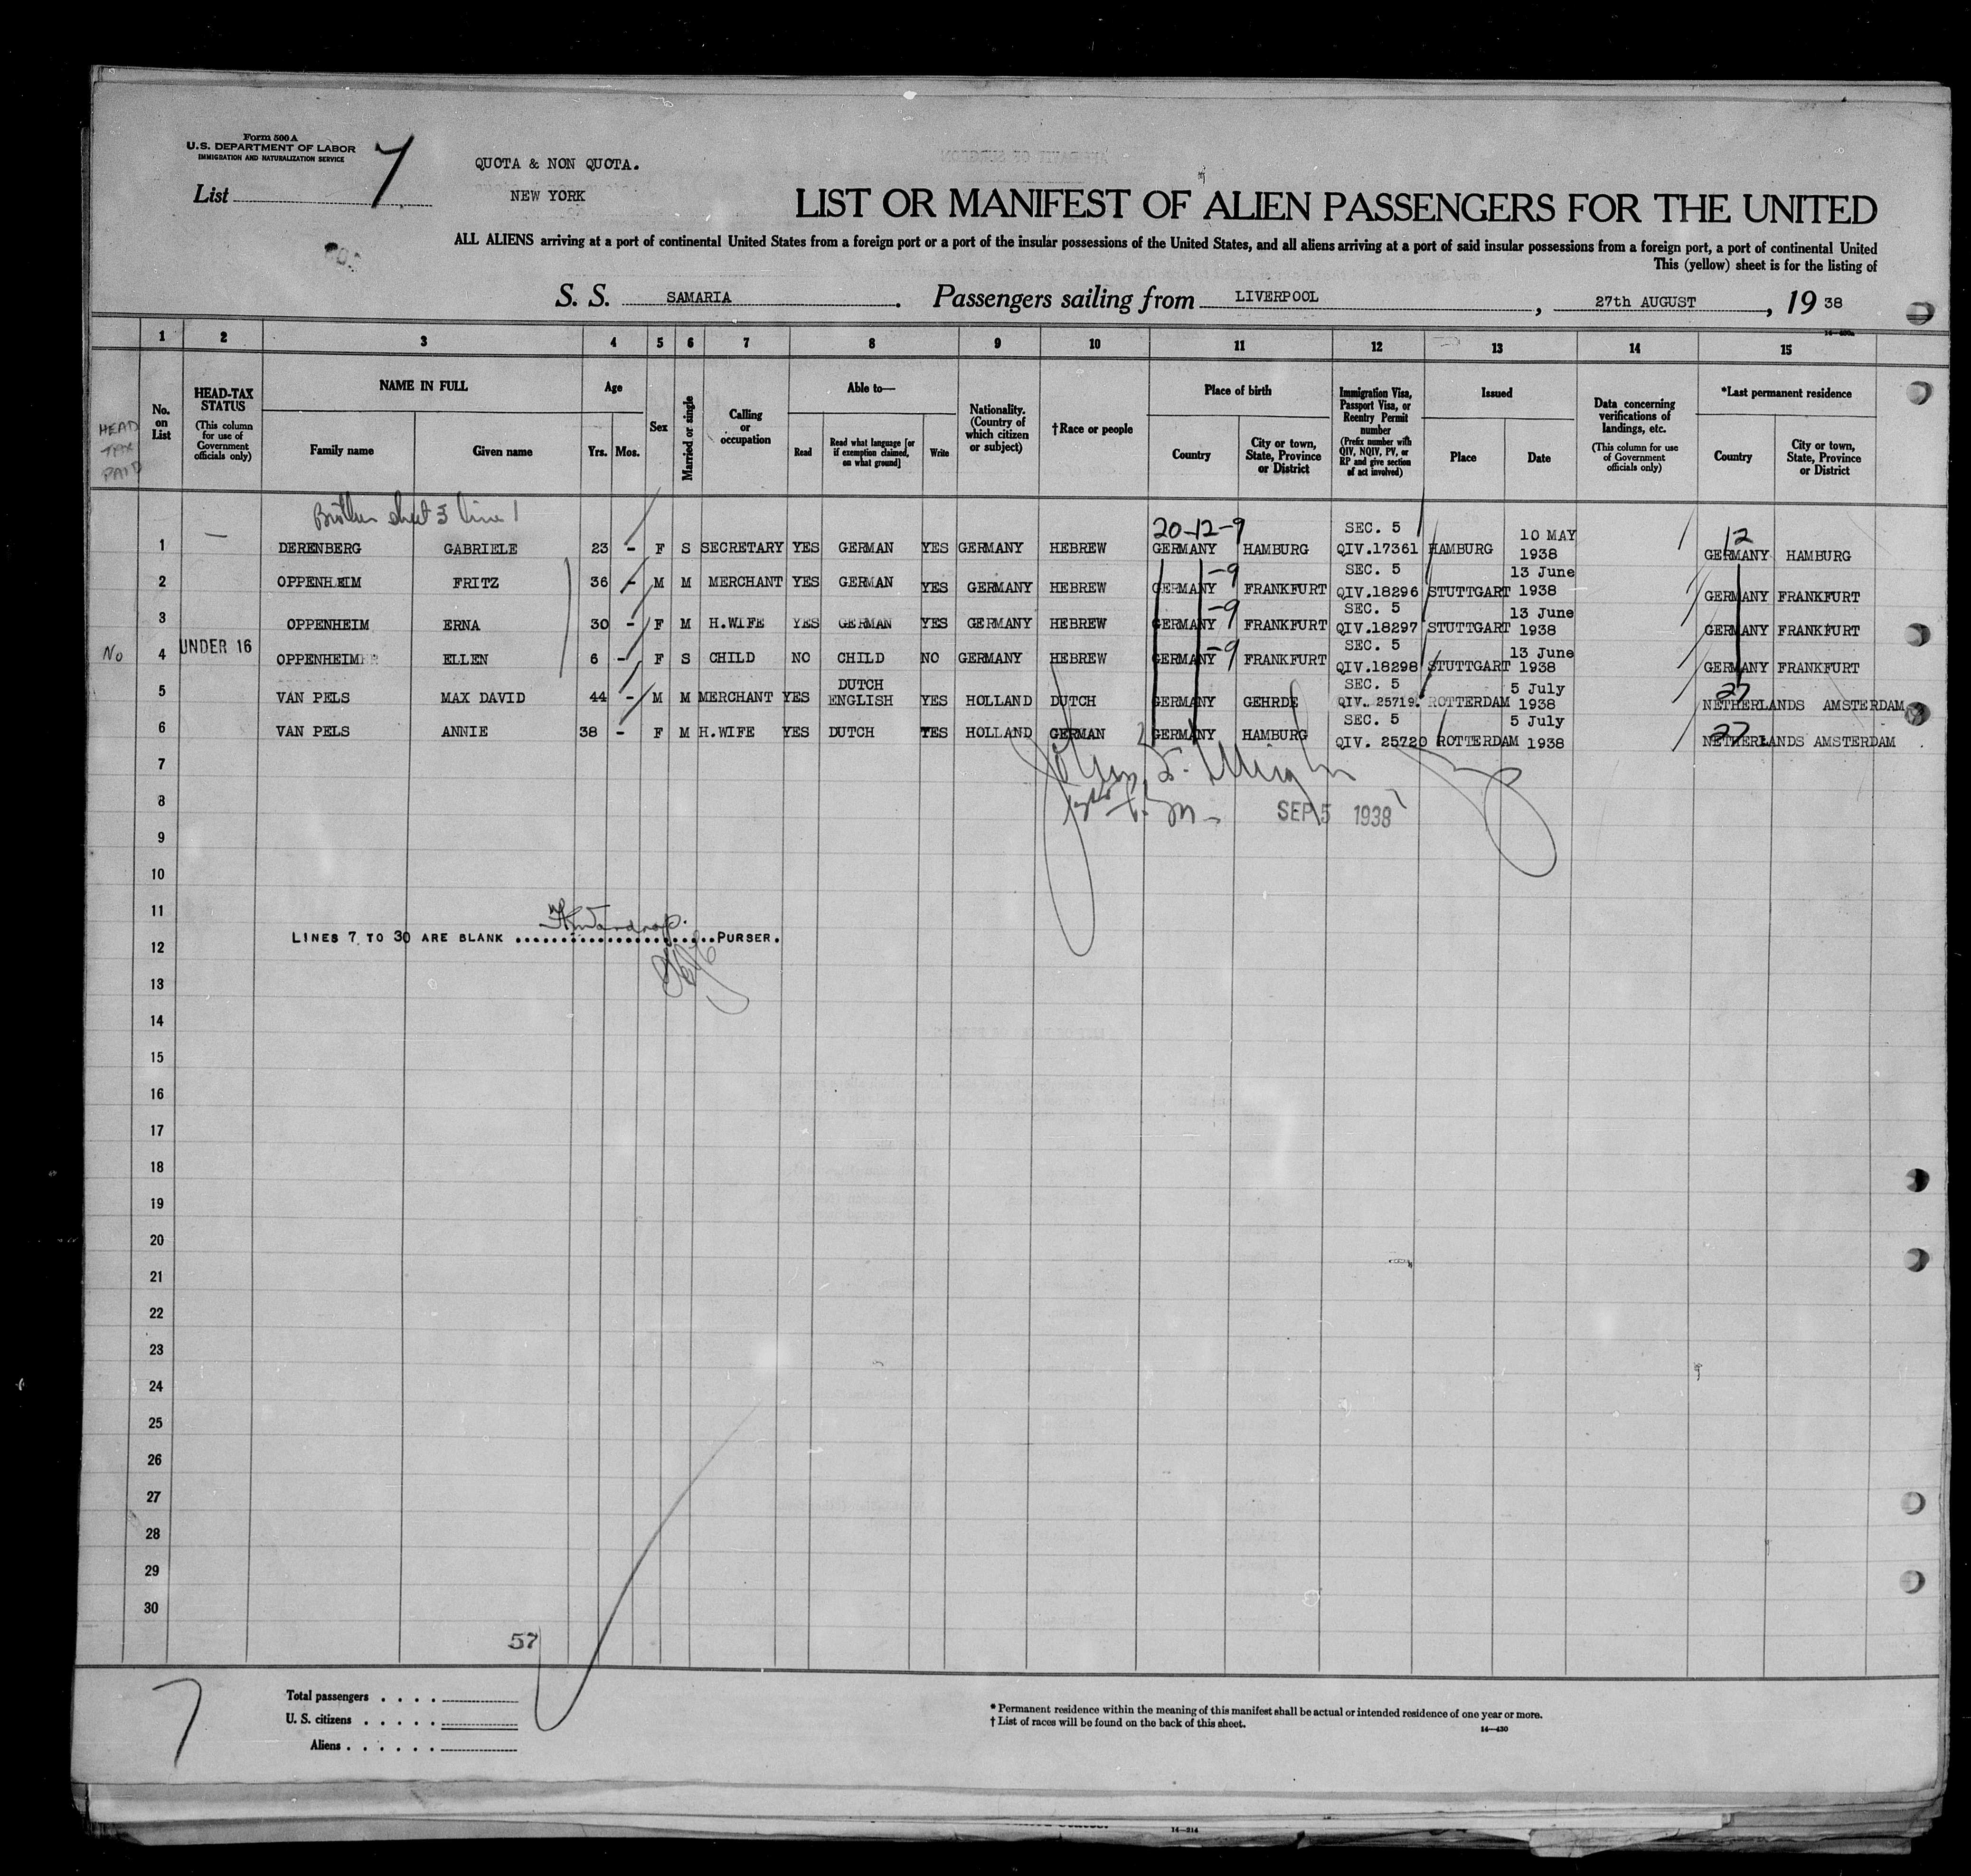 Form 500 A
U.S. DEPARTMENT OF LABOR
IMMIGRATION AND NATURALIZATION SERVICE
List 7
QUOTA & NON QUOTA.
NEW YORK
LIST OR MANIFEST OF ALIEN PASSENGERS FOR THE UNITED
ALL ALIENS arriving at a port of continental United States from a foreign port or a port of the insular possessions of the United States, and all aliens arriving at a port of said insular possessions from a foreign port, a port of continental United
This (yellow) sheet is for the listing of
S. S. SAMARIA. Passengers sailing from LIVERPOOL, 27th AUGUST, 19 38
1 2 3 4 5 6 7 8 9 10 11 12 13 14 15
HEAD TAX PAID
No. on List
HEAD-TAX STATUS (This column for use of Government officials only)
NAME IN FULL
Family name Given name
Age
Yrs. Mos.
Sex
Married or single
Calling or occupation
Able to—
Read Read what language [or if exemption claimed, on what ground] Write
Nationality. (Country of which citizen or subject)
†Race or people
Place of birth
Country City or town, State, Province or District
Immigration Visa, Passport Visa, or Reentry Permit number (Prefix number with QIV, NQIV, PV, or RP and give section of act involved)
Issued
Place Date
Data concerning verifications of landings, etc. (This column for use of Government officials only)
*Last permanent residence
Country City or town, State, Province or District
Brother sheet 5 line 1
20-12-9 12
1 — DERENBERG GABRIELE 23 - F S SECRETARY YES GERMAN YES GERMANY HEBREW GERMANY HAMBURG SEC. 5 QIV.17361 HAMBURG 10 MAY 1938 GERMANY HAMBURG
2 OPPENHEIM FRITZ 36 - M M MERCHANT YES GERMAN YES GERMANY HEBREW GERMANY -9 FRANKFURT SEC. 5 QIV.18296 STUTTGART 13 June 1938 GERMANY FRANKFURT
3 OPPENHEIM ERNA 30 - F M H.WIFE YES GERMAN YES GERMANY HEBREW GERMANY -9 FRANKFURT SEC. 5 QIV.18297 STUTTGART 13 June 1938 GERMANY FRANKFURT
No 4 UNDER 16 OPPENHEIM ELLEN 6 - F S CHILD NO CHILD NO GERMANY HEBREW GERMANY -9 FRANKFURT SEC. 5 QIV.18298 STUTTGART 13 June 1938 GERMANY FRANKFURT
5 VAN PELS MAX DAVID 44 - M M MERCHANT YES DUTCH ENGLISH YES HOLLAND DUTCH GERMANY GEHRDE SEC. 5 QIV. 25719. ROTTERDAM 5 July 1938 27 NETHERLANDS AMSTERDAM
6 VAN PELS ANNIE 38 - F M H.WIFE YES DUTCH YES HOLLAND GERMAN GERMANY HAMBURG SEC. 5 QIV. 25720 ROTTERDAM 5 July 1938 27 NETHERLANDS AMSTERDAM
7
8
SEP 5 1938
9
10
11
LINES 7 TO 30 ARE BLANK PURSER.
12
13
14
15
16
17
18
19
20
21
22
23
24
25
26
27
28
29
30
57
7
Total passengers . . . .
U. S. citizens . . . . .
Aliens . . . . . .
* Permanent residence within the meaning of this manifest shall be actual or intended residence of one year or more.
† List of races will be found on the back of this sheet.
14—430
14—214